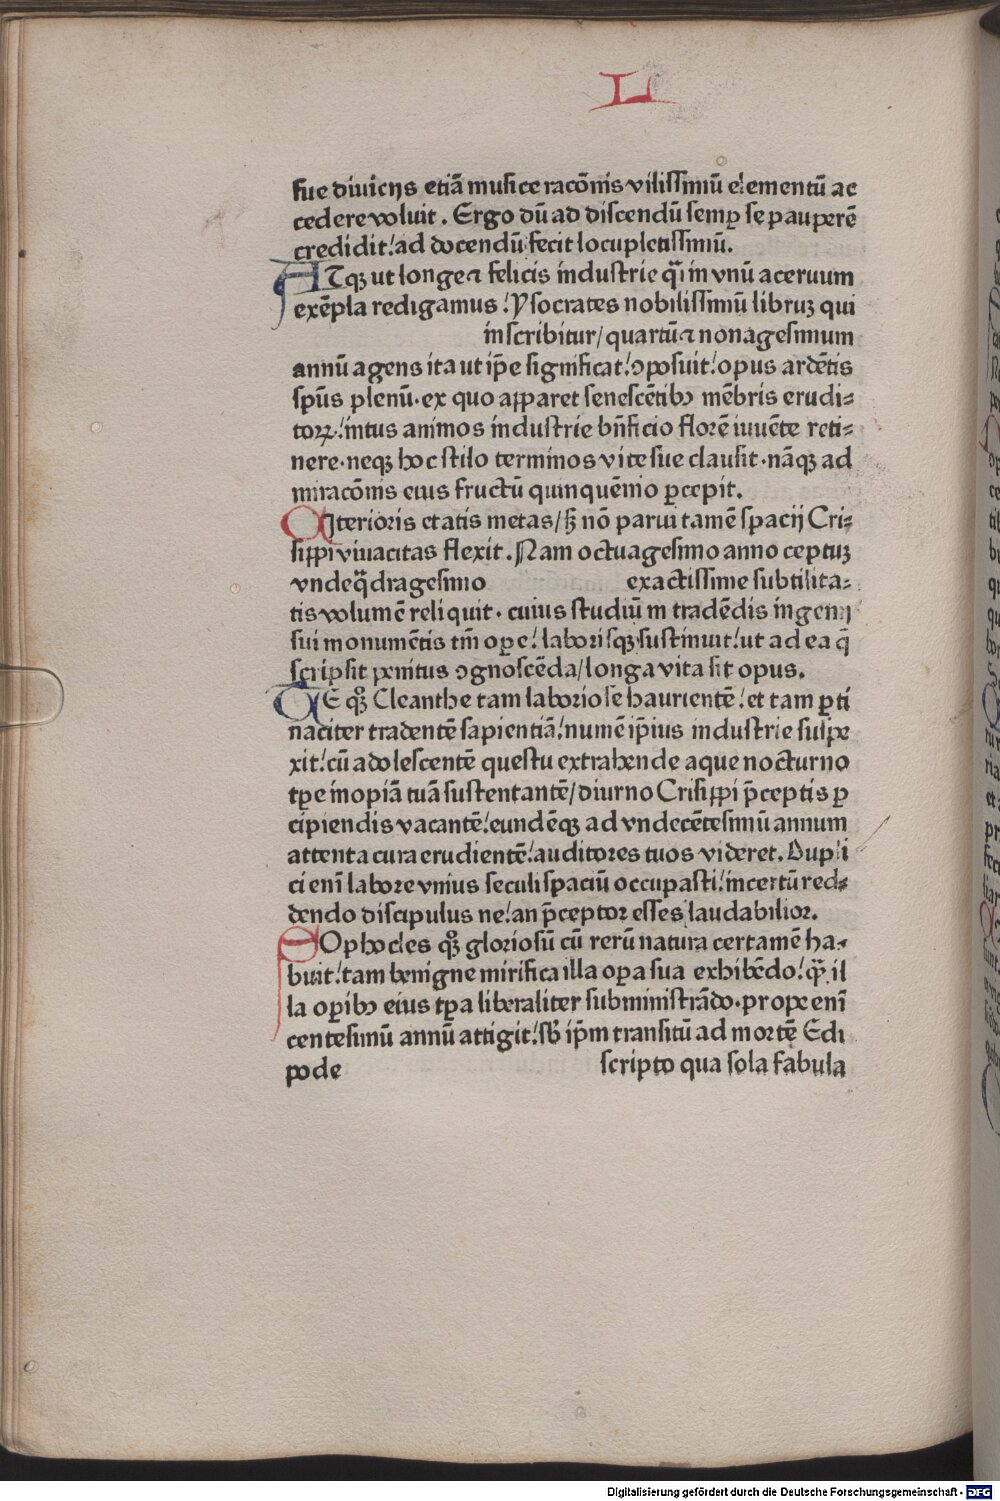 L
sue diuicijs etiā musice racōnis vilissimū elementū ac
cedere voluit. Ergo dū ad discendū semꝑ se pauperē
credidit! ad docendū fecit locupletissimū.
ATqꝫ ut longe ⁊ felicis industrie qͣi in vnū aceruum
exēpla redigamus! Ysocrates nobilissimū libruꝫ qui
inscribitur/ quartū ⁊ nonagesimum
annū agens ita ut ip̄e significat! ↄposuit! opus ardētis
sp̄us plenū. ex quo apparet senescētibꝰ mēbris erudi⸗
toꝝ! intus animos industrie bn̄ficio florē iuuēte reti⸗
nere. neqꝫ hoc stilo terminos vite sue clausit. nāqꝫ ad
miracōnis eius fructū quinquēnio ꝑcepit.
CIterioris etatis metas/ sꝫ nō parui tamē spacij Cri⸗
sippi viuacitas flexit. Nam octuagesimo anno ceptuꝫ
vndeqͣdragesimo exactissime subtilita⸗
tis volumē reliquit. cuius studiū in tradēdis ingenij
sui monumētis tm̄ oꝑe! laborisqꝫ sustinuit! ut ad ea q̄
scripsit penitus ↄgnoscēda/ longa vita sit opus.
TE qꝫ Cleanthe tam laboriose haurientē! et tam ꝑti
naciter tradentē sapientiā! numē ip̄ius industrie suspe
xit! cū adolescentē questu extrahende aque nocturno
tꝑe inopiā tuā sustentantē/ diurno Crisippi p̄ceptis ꝑ
cipiendis vacantē! eundēqꝫ ad vndecētesimū annum
attenta cura erudientē! auditores tuos videret. Dupli
ci enī labore vnius seculi spaciū occupasti! incertū red⸗
dendo discipulus ne! an p̄ceptor esses laudabilior.
SOphocles qꝫ gloriosū cū rerū natura certamē ha⸗
buit! tam benigne mirifica illa oꝑa sua exhibēdo! qͣꝫ il
la oꝑibꝰ eius tꝑa liberaliter subministrādo. prope enī
centesimū annū attigit! sb̄ ip̄m transitū ad mortē Edi
pode scripto qua sola fabula
Digitalisierung gefördert durch die Deutsche Forschungsgemeinschaft - DFG